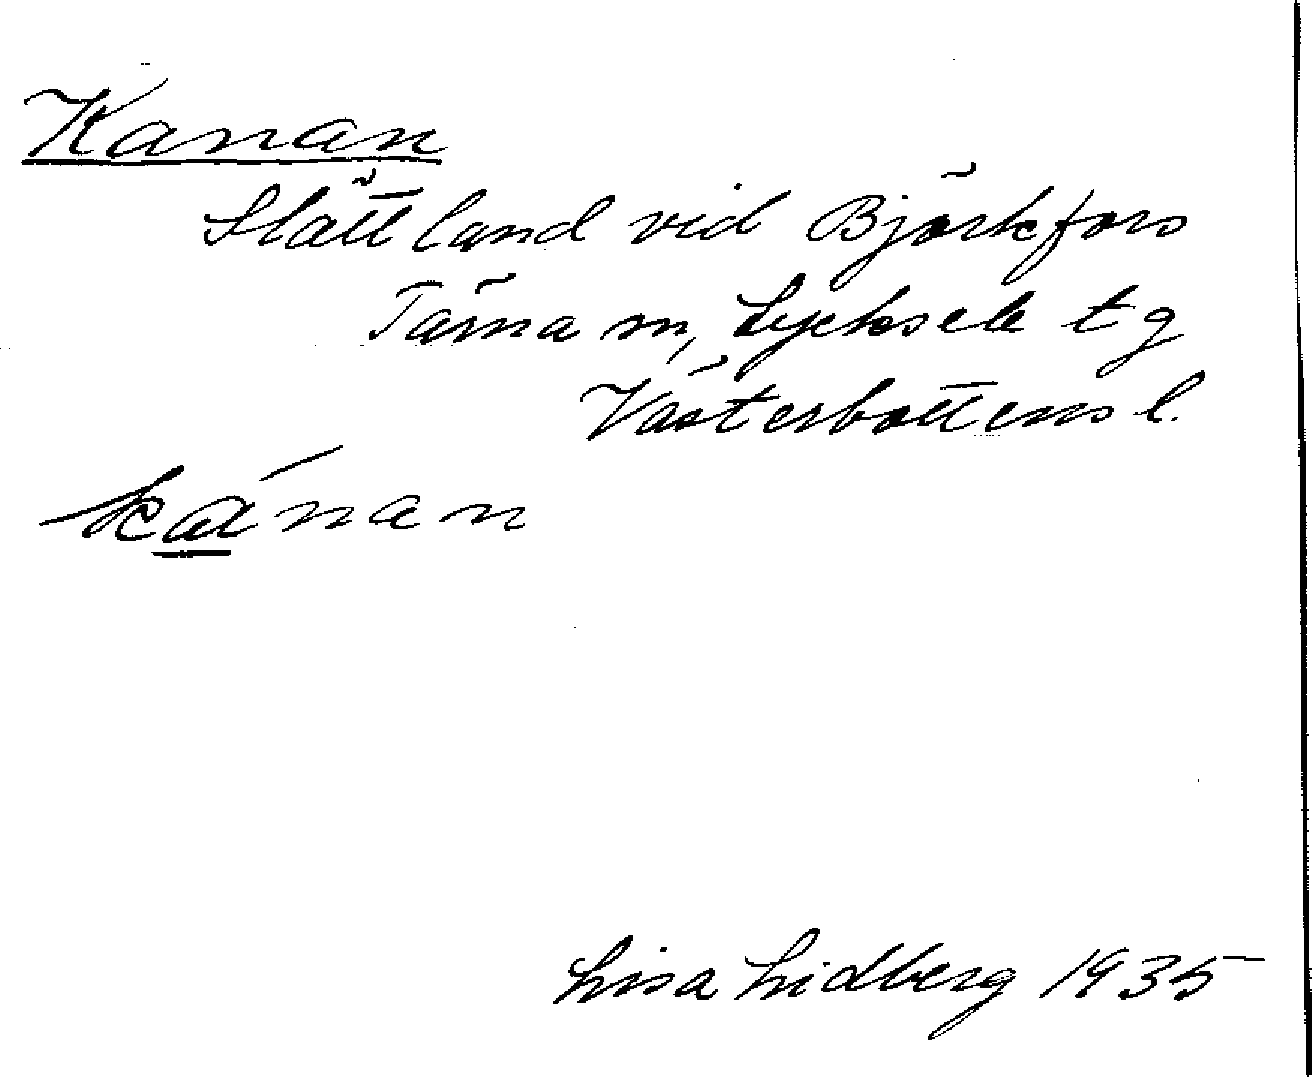 Kanan
Slåttland vid Björkfors
Tärna sn, Lycksele tg
Västerbottens l.
ká̱nan
Lisa Lidberg 1935